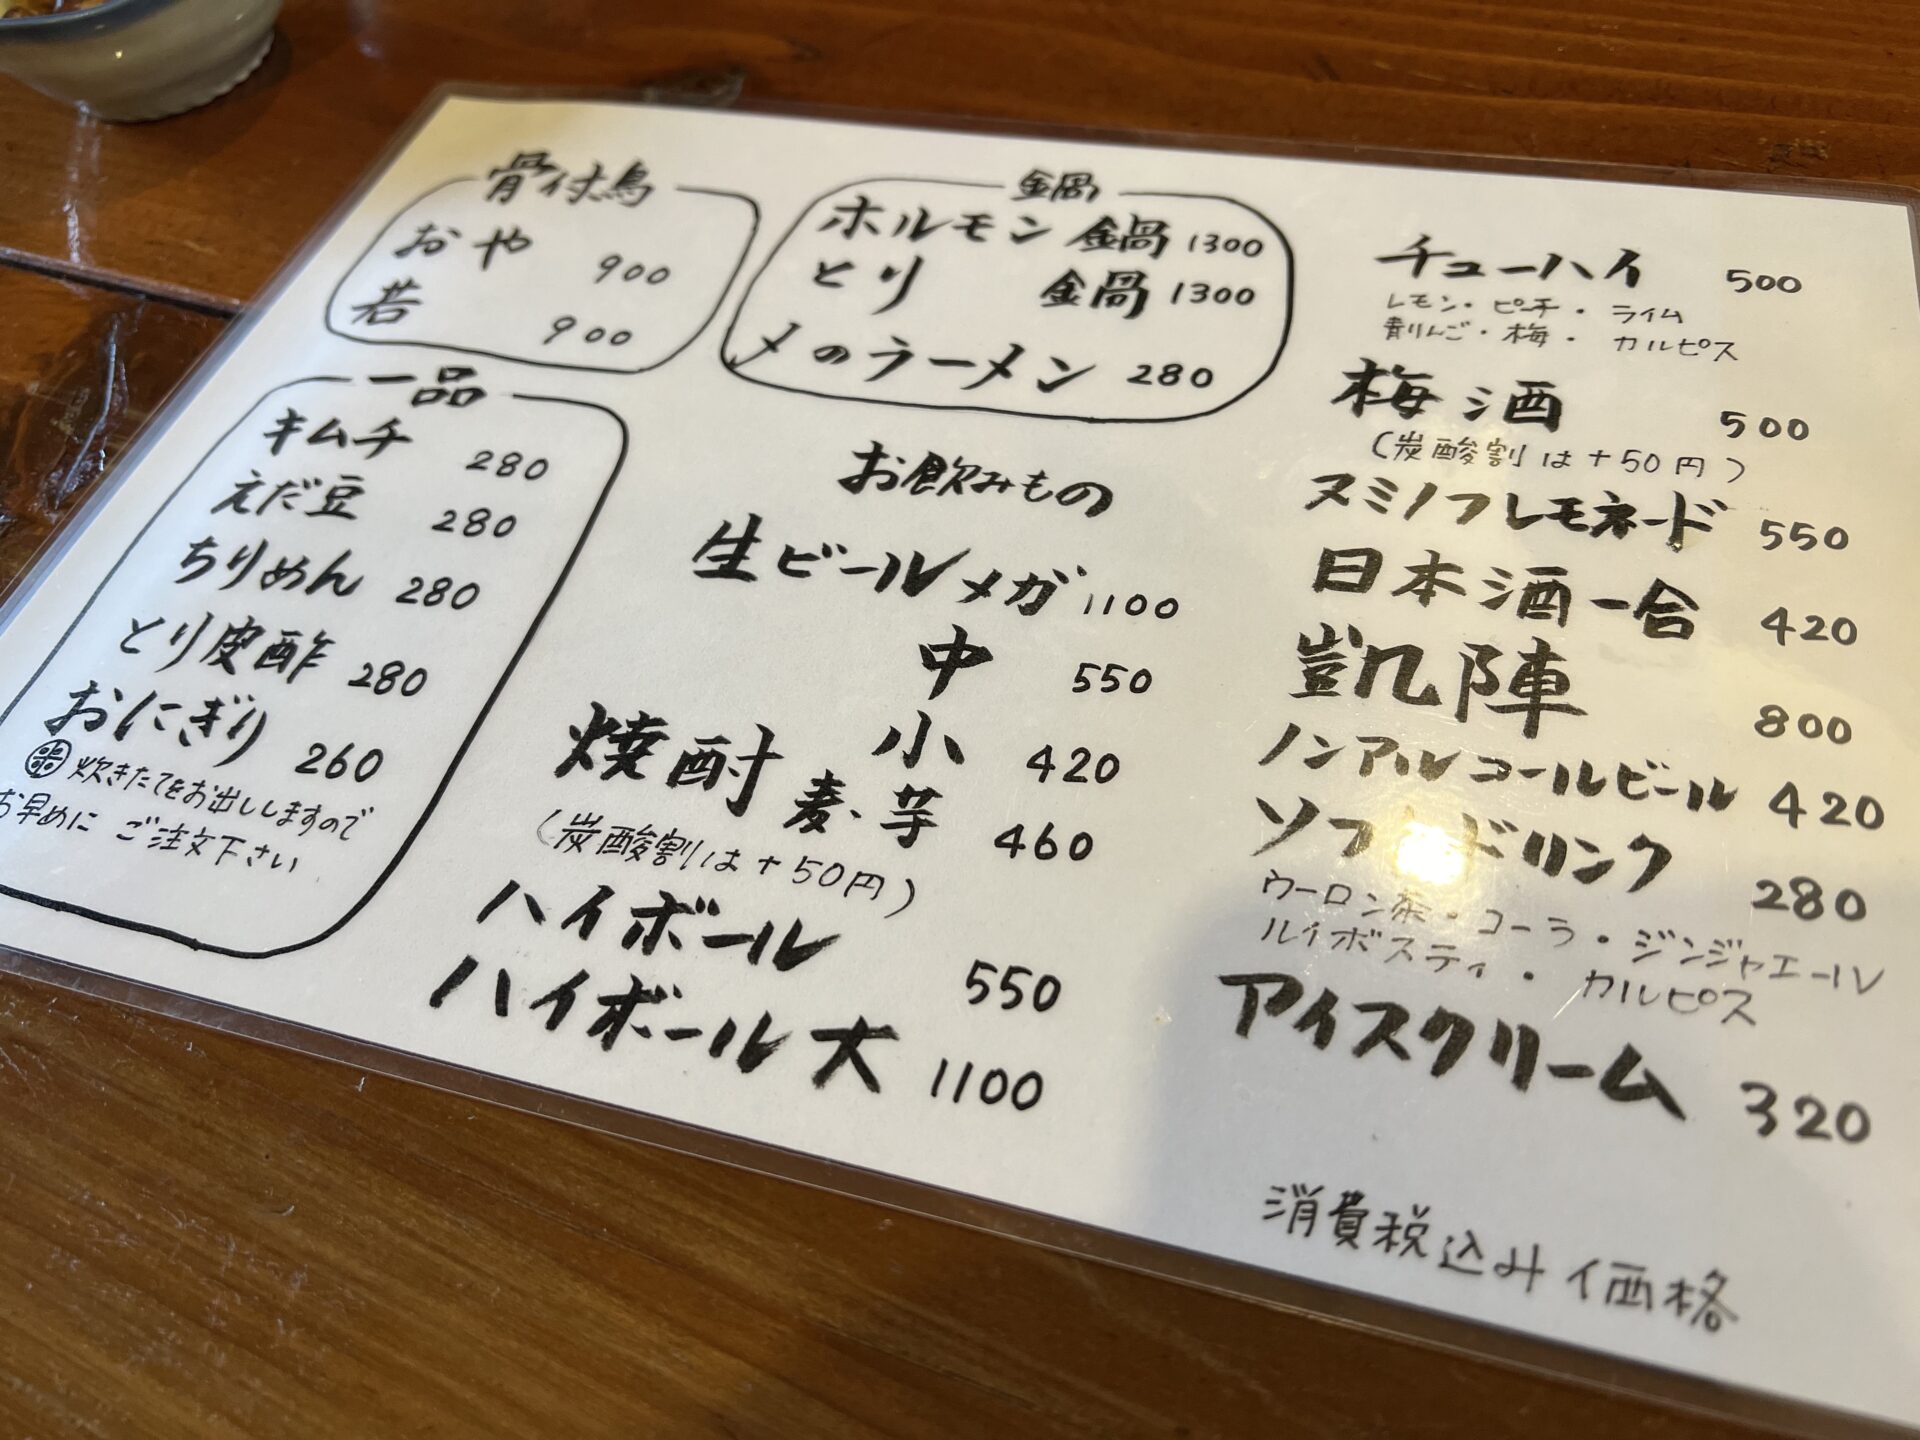 骨付鳥
おや 900
若 900
一品
キムチ 280
えだ豆 280
ちりめん 280
とり皮酢 280
おにぎり 260
炊きたてをお出ししますので
お早めに ご注文下さい
鍋
ホルモン鍋 1300
とり 鍋 1300
〆のラーメン 280
お飲みもの
生ビール メガ 1100
中 550
小 420
焼酎 麦・芋 460
(炭酸割は+50円)
ハイボール 550
ハイボール 大 1100
チューハイ 500
レモン・ピーチ・ライム
青りんご・梅・カルピス
梅酒 500
(炭酸割は+50円)
スミノフレモネード 550
日本酒一合 420
凱陣 800
ノンアルコールビール 420
ソフトドリンク 280
ウーロン茶・コーラ・ジンジャエール
ルイボスティ・カルピス
アイスクリーム 320
消費税込み価格